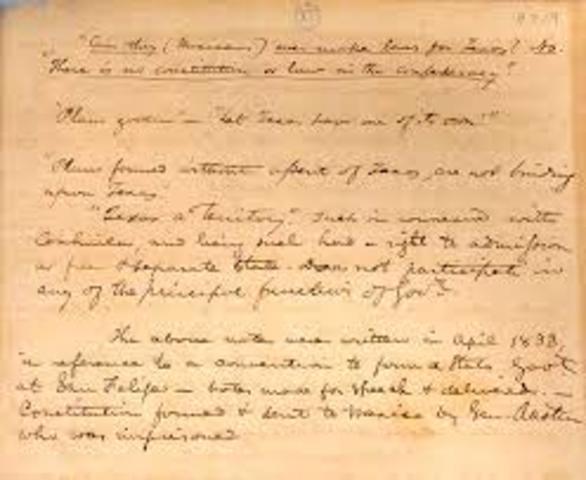 "Can they (Mexicans) ever make laws for Texas? No.
"There is no constitution or law in the confederacy"
"Plans given" — "Let Texas have one of its own!"
"Plans formed without assent of Texas, are not binding
upon Texas"
"Texas a Territory." Such in with
Coahuila, and being such had a right to admission
as free & separate State. Does not participate in
any of the principal functions of Govt.
The above notes were written in April 1833,
in reference to a convention to form a State Gov't
at San Felipe — notes made for speech & delivered. —
Constitution formed & sent to Mexico by Gen. Austin
who was imprisoned